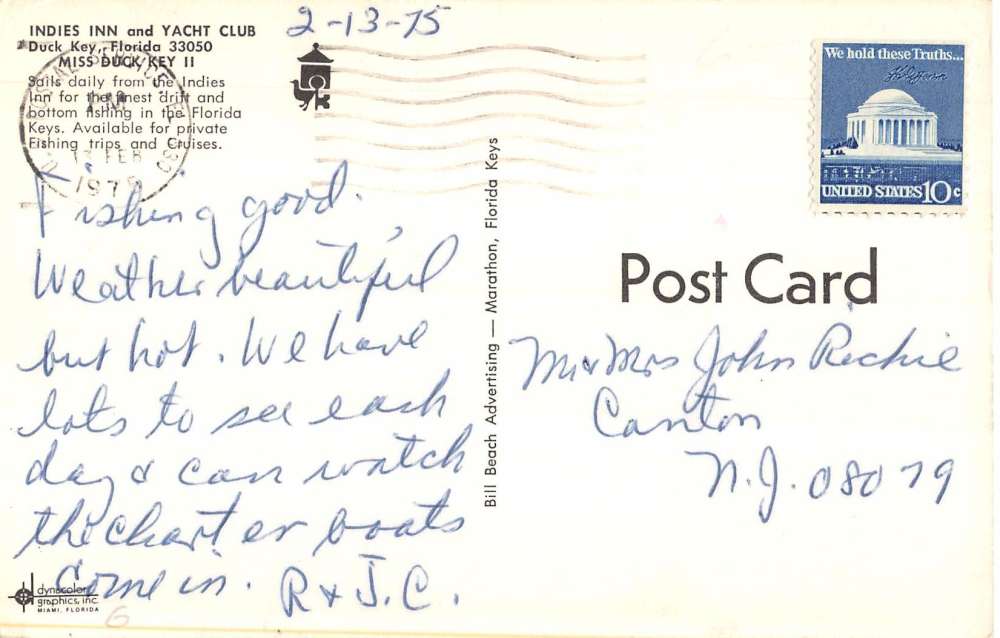 2-13-75
INDIES INN and YACHT CLUB
Duck Key, Florida 33050
MISS DUCK KEY II
Sails daily from the Indies
Inn for the finest drift and
bottom fishing in the Florida
Keys. Available for private
Fishing trips and Cruises.
13 FEB
1975
Fishing good.
Weather beautiful
but hot. We have
lots to see each
day & can watch
the charter boats
Come in. R & J.C.
dynacolor
graphics, inc.
MIAMI, FLORIDA
6
Bill Beach Advertising — Marathon, Florida Keys
We hold these Truths...
UNITED STATES 10c
Post Card
Mr & Mrs John Richie
Canton
N.J. 08079